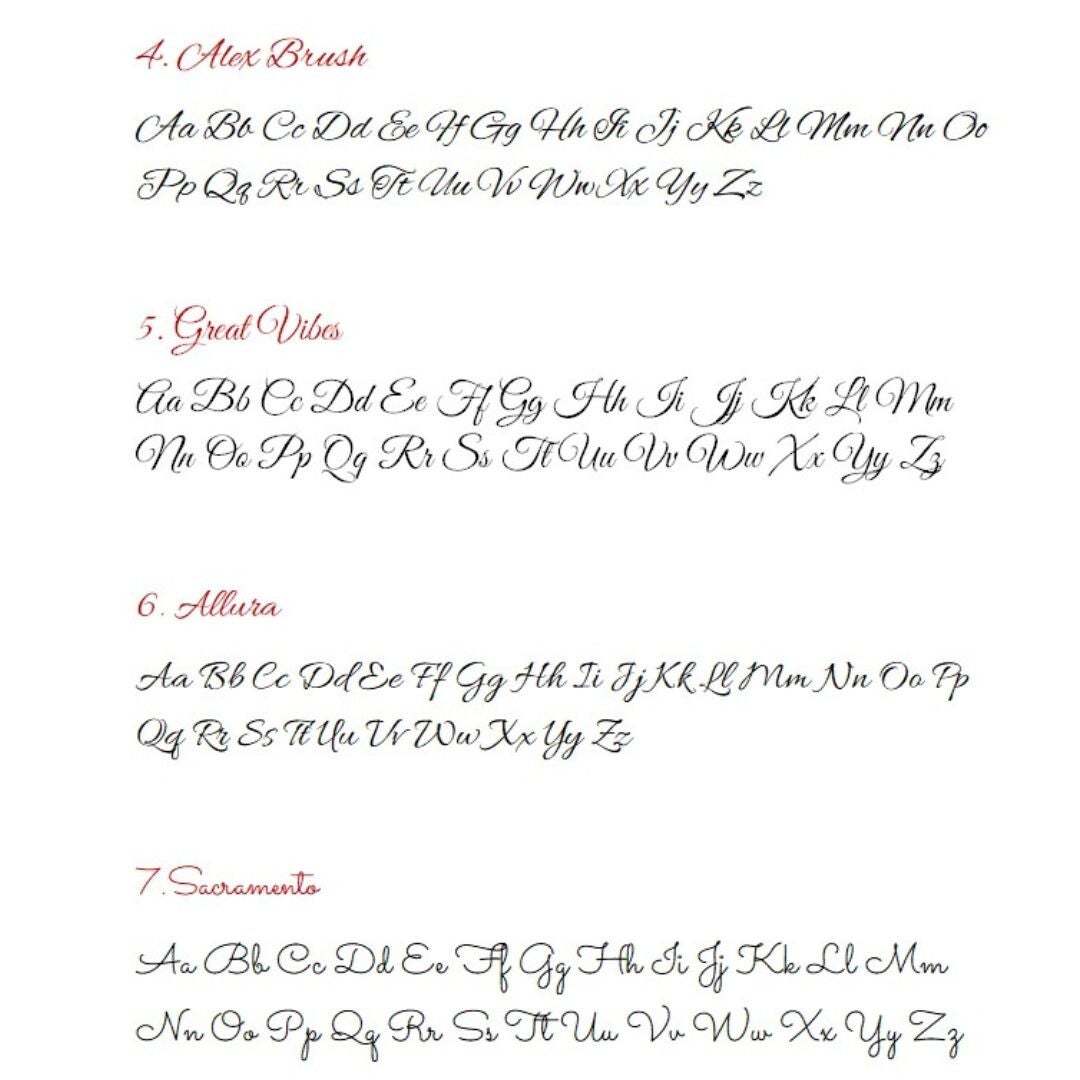 4. Alex Brush
Aa Bb Cc Dd Ee Ff Gg Hh Ii Jj Kk Ll Mm Nn Oo
Pp Qq Rr Ss Tt Uu Vv Ww Xx Yy Zz
5. Great Vibes
Aa Bb Cc Dd Ee Ff Gg Hh Ii Jj Kk Ll Mm
Nn Oo Pp Qq Rr Ss Tt Uu Vv Ww Xx Yy Zz
6. Allura
Aa Bb Cc Dd Ee Ff Gg Hh Ii Jj Kk Ll Mm Nn Oo Pp
Qq Rr Ss Tt Uu Vv Ww Xx Yy Zz
7. Sacramento
Aa Bb Cc Dd Ee Ff Gg Hh Ii Jj Kk Ll Mm
Nn Oo Pp Qq Rr Ss Tt Uu Vv Ww Xx Yy Zz